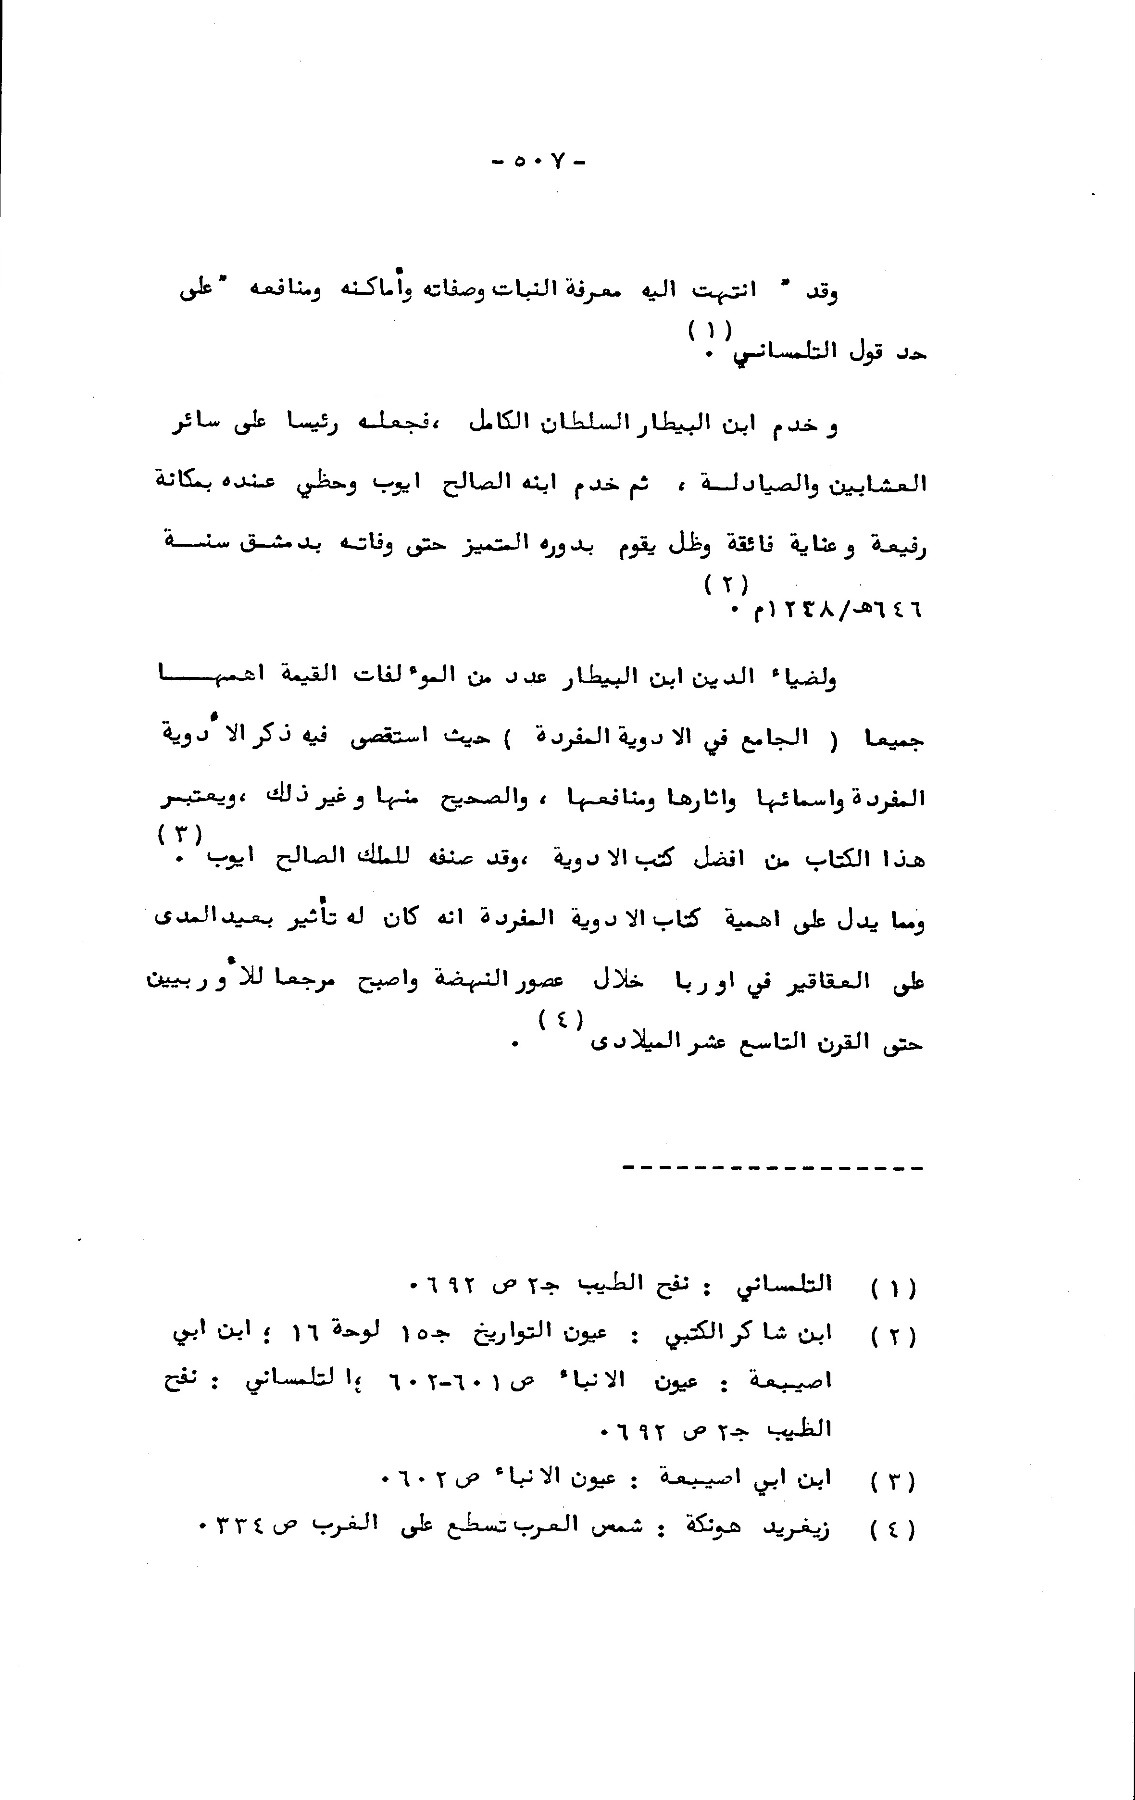 - ٥٠٧ -
وقد " انتهت اليه معرفة النبات وصفاته وأماكنه ومنافعه " على
حد قول التلمساني (١) .
وخدم ابن البيطار السلطان الكامل ، فجعله رئيسا على سائر
العشابين والصيادلة ، ثم خدم ابنه الصالح ايوب وحظي عنده بمكانة
رفيعة وعناية فائقة وظل يقوم بدوره المتميز حتى وفاته بدمشق سنة
٦٤٦هـ/١٢٣٨م (٢) .
ولضياء الدين ابن البيطار عدد من المؤلفات القيمة اهمها
جميعا ( الجامع في الادوية المفردة ) حيث استقصى فيه ذكر الأدوية
المفردة واسمائها واثارها ومنافعها ، والصحيح منها وغير ذلك ، ويعتبر
هذا الكتاب من افضل كتب الادوية ، وقد صنفه للملك الصالح ايوب (٣) .
ومما يدل على اهمية كتاب الادوية المفردة انه كان له تأثير بعيد المدى
على العقاقير في اوربا خلال عصور النهضة واصبح مرجعا للأوربيين
حتى القرن التاسع عشر الميلادى (٤) .
-----------------
(١) التلمساني : نفح الطيب جـ٢ ص ٦٩٢ .
(٢) ابن شاكر الكتبي : عيون التواريخ جـ١٥ لوحة ١٦ ؛ ابن ابي
اصيبعة : عيون الانباء ص ٦٠١-٦٠٢ ؛ التلمساني : نفح
الطيب جـ٢ ص ٦٩٢ .
(٣) ابن ابي اصيبعة : عيون الانباء ص ٦٠٢ .
(٤) زيغريد هونكة : شمس العرب تسطع على الغرب ص ٣٣٤ .